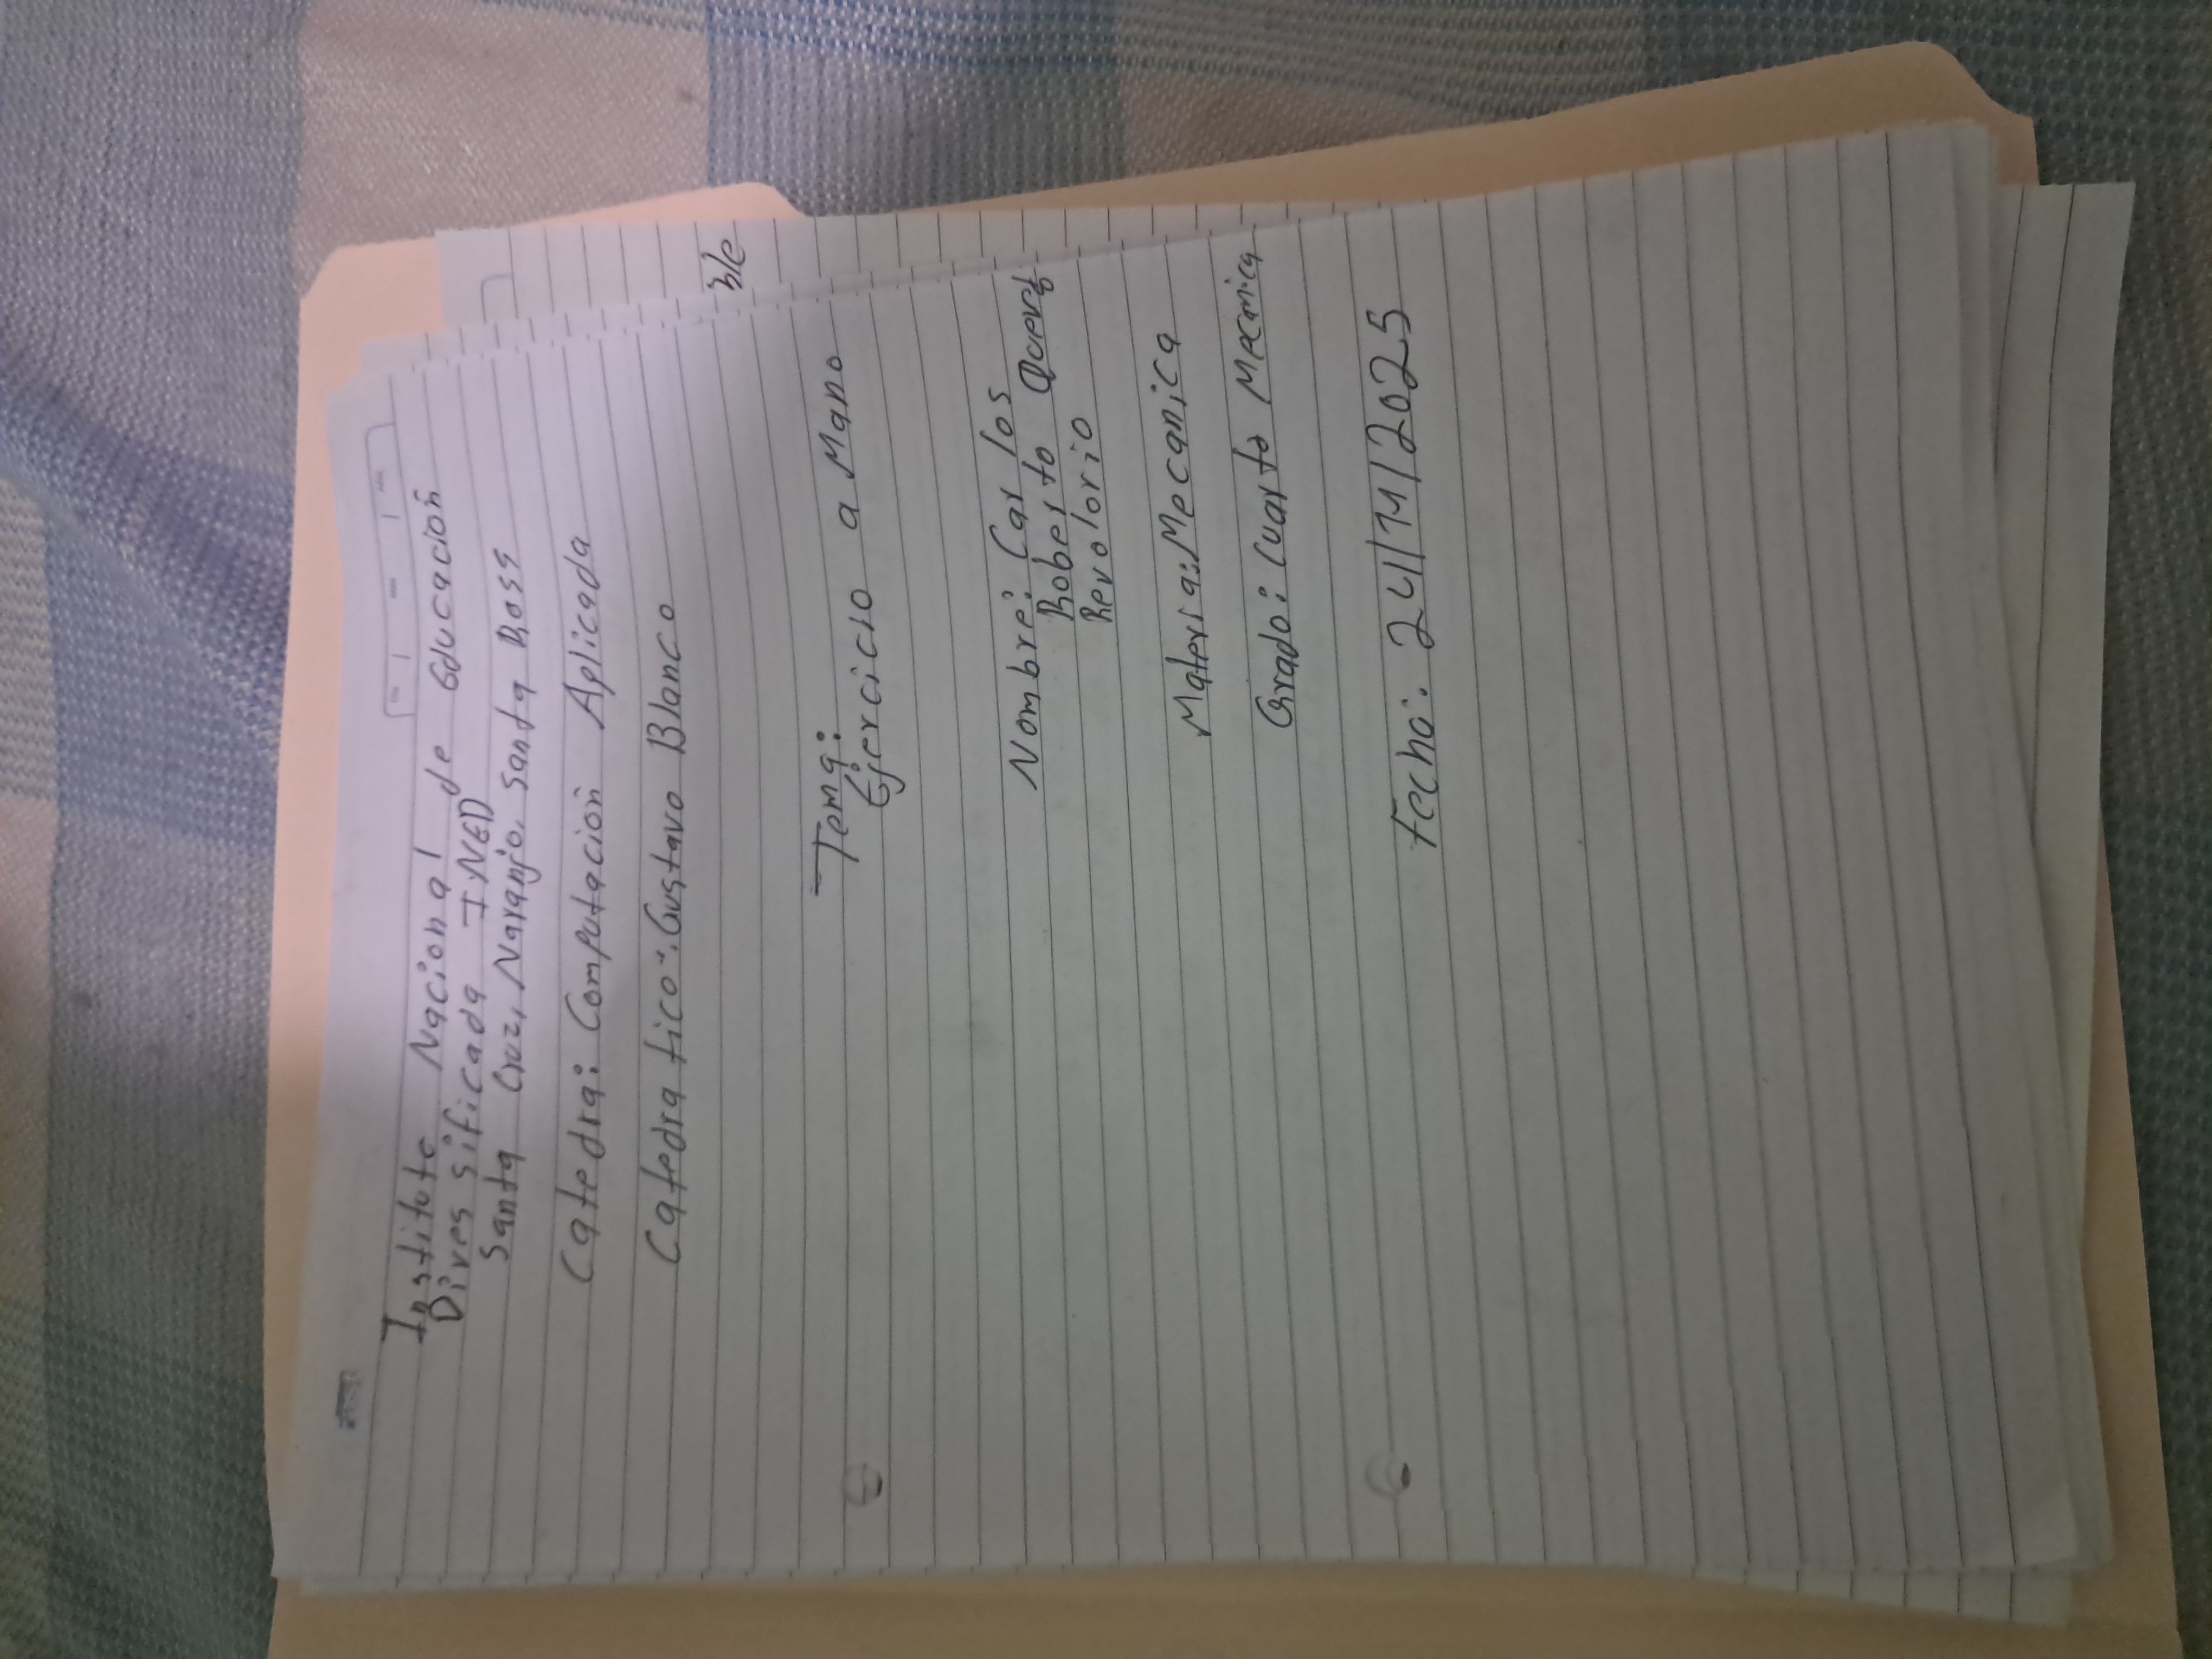 Instituto Nacional de Educación
Diversificada INED
Santa Cruz, Naranjo, Santa Rosa
Catedra: Computación Aplicada
Catedratico: Gustavo Blanco
ble
Tema:
Ejercicio a Mano
Nombre: Carlos
Roberto
Revolorio
Materia: Mecanica
Grado: Cuarto
Fecha: 24/11/2025